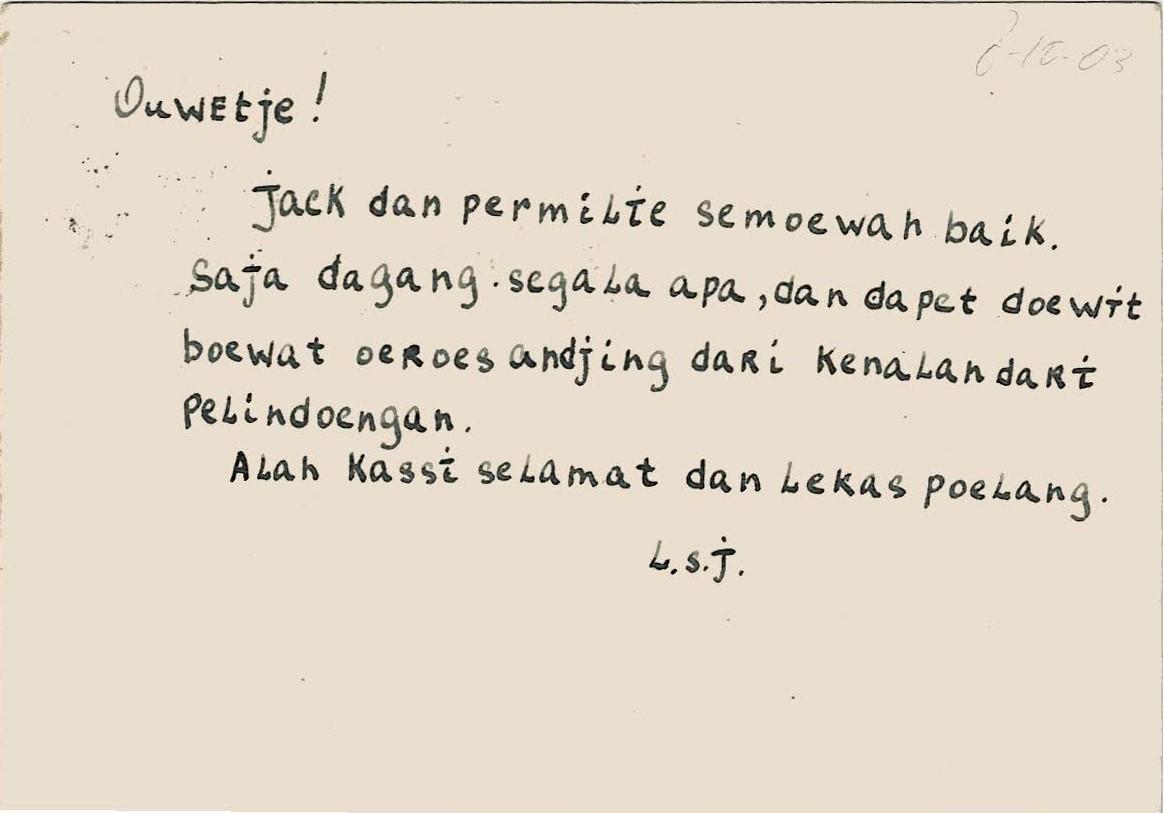 ?-10-03
Ouwetje!
Jack dan permilie semoewah baik.
Saja dagang segala apa, dan dapet doewit
boewat oeroes andjing dari kenalan dari
pelindoengan.
Alah kassi selamat dan lekas poelang.
L.s.j.